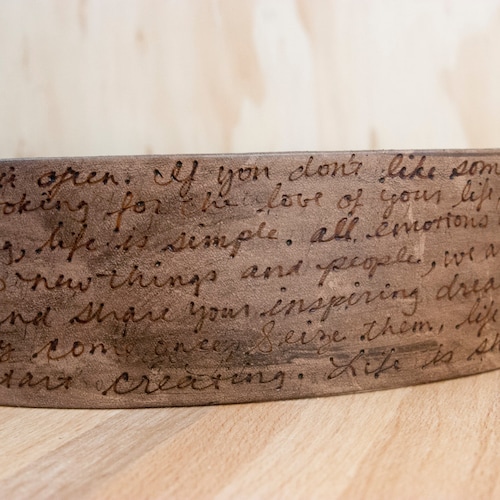 it often. If you don't like som
ooking for the love of your life
g, life is simple. all emotions
new things and people, we a
nd share your inspiring drea
s come once, seize them, life
start creating. Life is sh